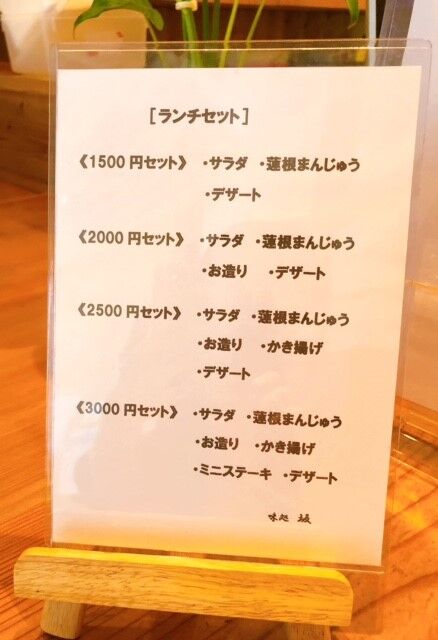 [ランチセット]
《1500円セット》 ・サラダ ・蓮根まんじゅう
・デザート
《2000円セット》 ・サラダ ・蓮根まんじゅう
・お造り ・デザート
《2500円セット》 ・サラダ ・蓮根まんじゅう
・お造り ・かき揚げ
・デザート
《3000円セット》 ・サラダ ・蓮根まんじゅう
・お造り ・かき揚げ
・ミニステーキ ・デザート
味処 坂